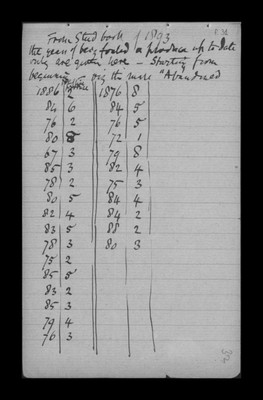 From Stud book of 1893
the years of being foaled & produce up to date
only are given here – Starting from
beginning viz the mare "Abandoned
1886 2 1876 8
84 6 84 5
76 2 76 5
80 8 72 1
67 3 79 8
85 3 82 4
78 2 75 3
80 5 84 4
82 4 84 2
83 5 88 2
78 3 80 3
75 2
85 5
83 2
85 3
79 4
76 3